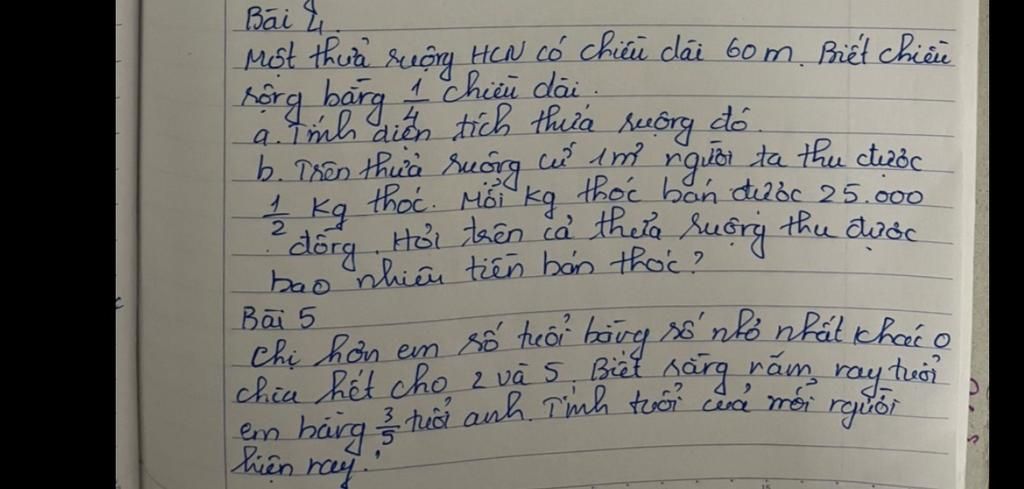 Bài 4.
Một thửa ruộng HCN có chiều dài 60 m. Biết chiều
rộng bằng 1/4 chiều dài.
a. Tính diện tích thửa ruộng đó.
b. Trên thửa ruộng cứ 1m² người ta thu được
1/2 kg thóc. Mỗi kg thóc bán được 25.000
đồng. Hỏi trên cả thửa ruộng thu được
bao nhiêu tiền bán thóc?
Bài 5
Chị hơn em số tuổi bằng số nhỏ nhất khác 0
chia hết cho 2 và 5. Biết rằng năm nay tuổi
em bằng 3/5 tuổi anh. Tính tuổi của mỗi người
hiện nay.